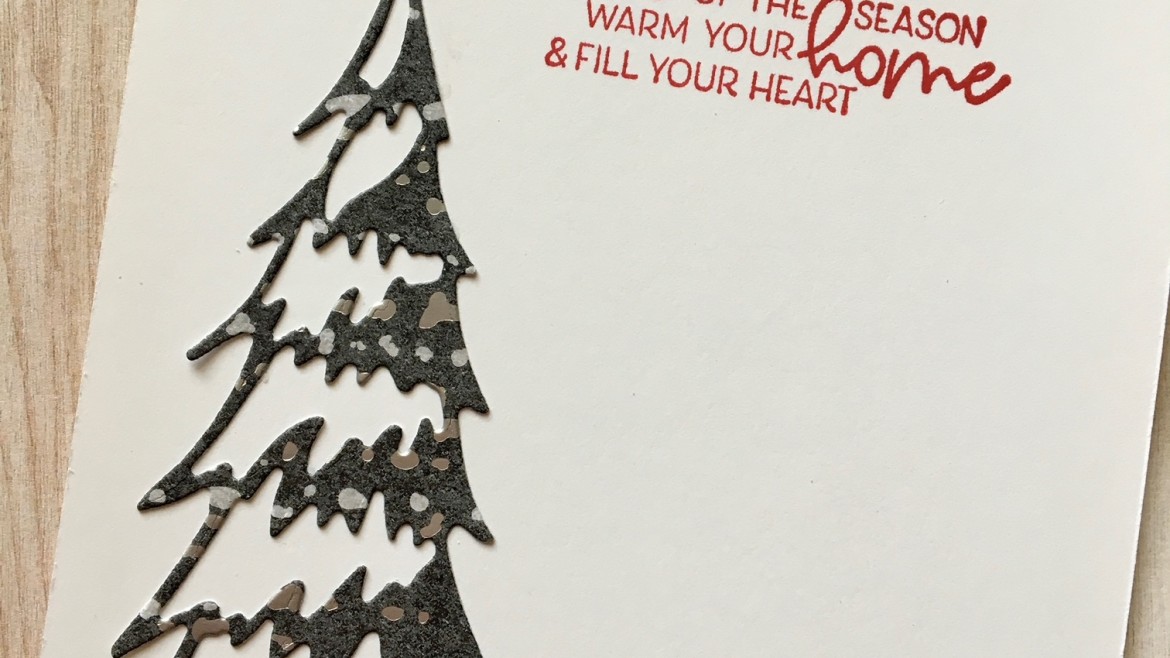 OF THE SEASON
WARM YOUR home
& FILL YOUR HEART